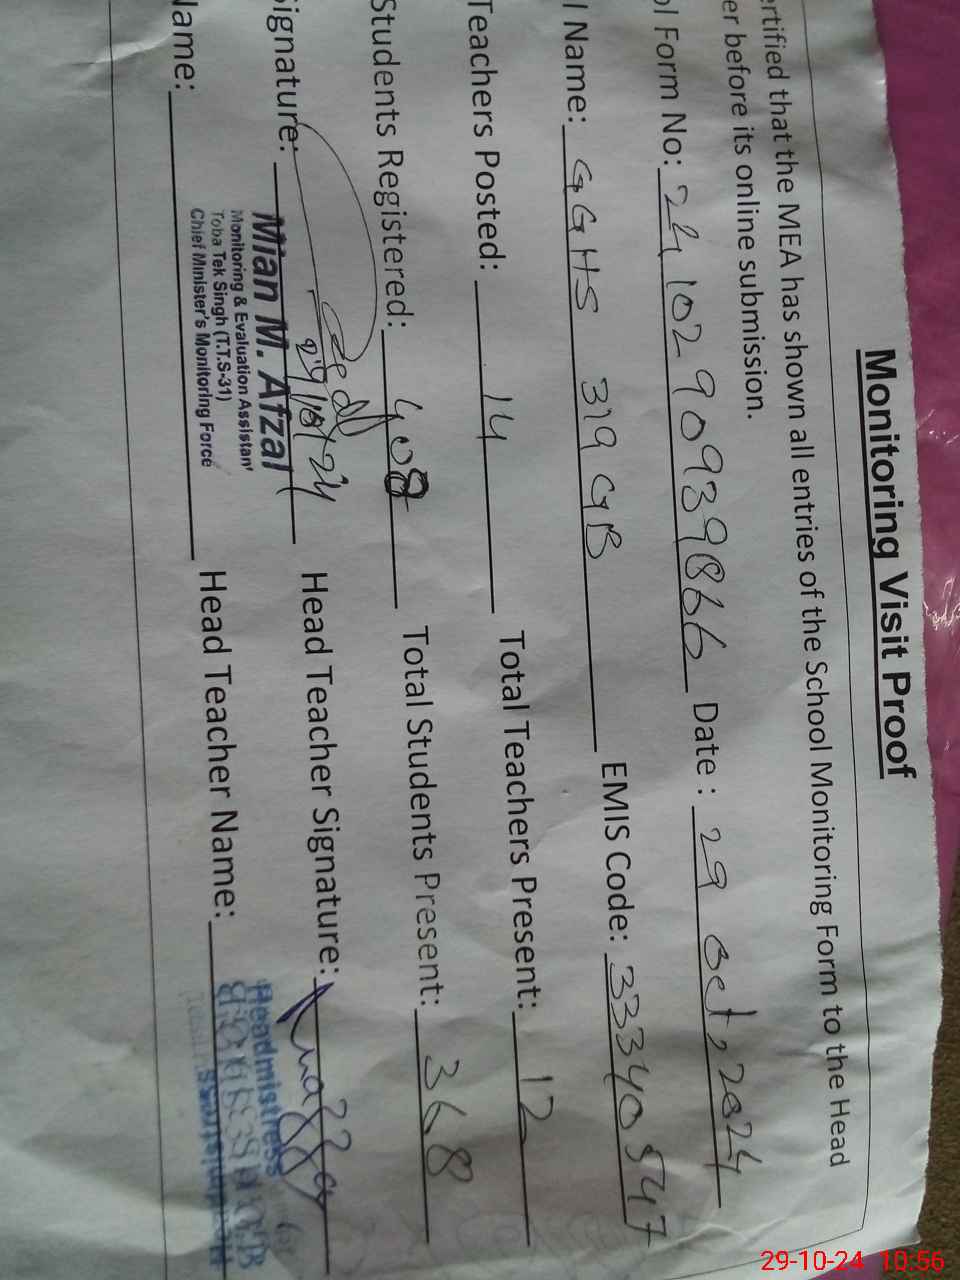 Monitoring Visit Proof
ertified that the MEA has shown all entries of the School Monitoring Form to the Head
er before its online submission.
ol Form No: 2410290939866 Date : 29 Oct, 2024
l Name: GGHS 319 GB EMIS Code: 33340547
Teachers Posted: 14 Total Teachers Present: 12
Students Registered: 408 Total Students Present: 368
Signature: 29/10/24 Head Teacher Signature:
Mian M. Afzal
Monitoring & Evaluation Assistan
Toba Tek Singh (T.T.S-31)
Chief Minister's Monitoring Force
Name: Head Teacher Name:
Headmistress
29-10-24 10:56